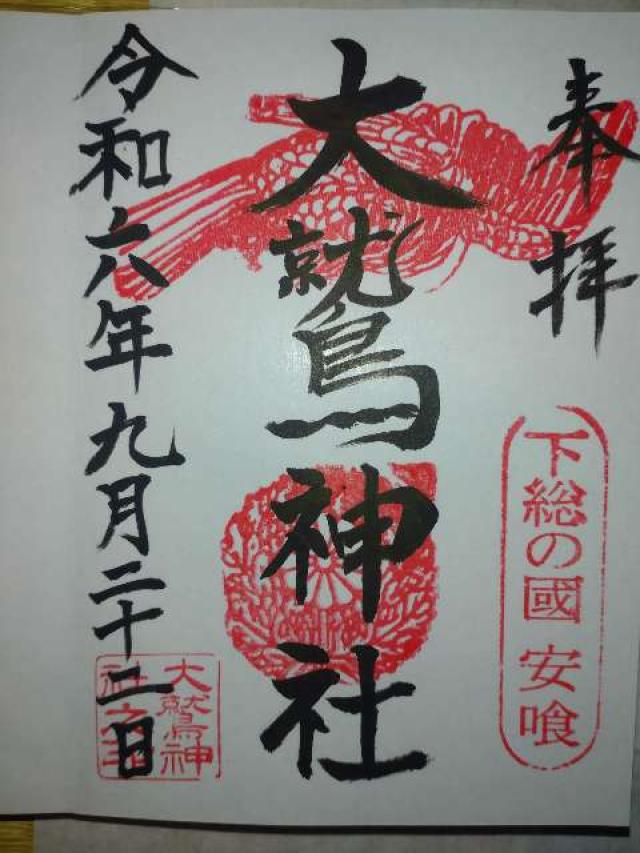 奉拝
下総の國 安喰
大鷲神社
令和六年九月二十二日
大鷲神
社之